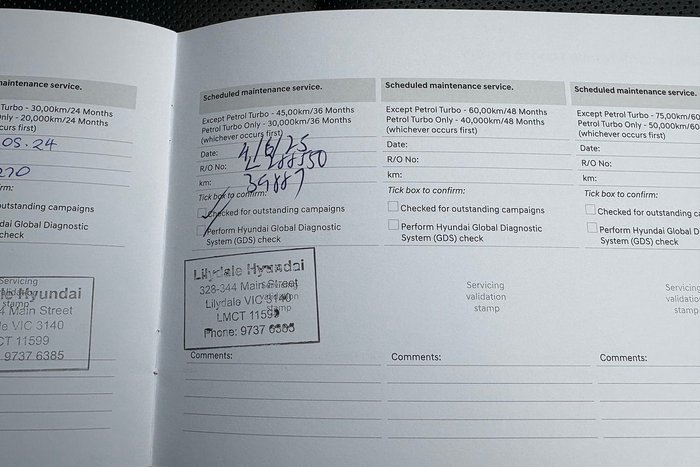 maintenance service.
Turbo - 30,00km/24 Months
Only - 20,000km/24 Months
occurs first)
08.24
270
rm:
outstanding campaigns
dai Global Diagnostic
check
Servicing
validation
stamp
le Hyundai
4 Main Street
le VIC 3140
CT 11599
9737 6385
Scheduled maintenance service.
Except Petrol Turbo - 45,00km/36 Months
Petrol Turbo Only - 30,000km/36 Months
(whichever occurs first)
Date: 4/6/25
R/O No: 288550
km: 39887
Tick box to confirm:
Checked for outstanding campaigns
Perform Hyundai Global Diagnostic
System (GDS) check
Servicing
validation
stamp
Lilydale Hyundai
328-344 Main Street
Lilydale VIC 3140
LMCT 11599
Phone: 9737 6385
Comments:
Scheduled maintenance service.
Except Petrol Turbo - 60,00km/48 Months
Petrol Turbo Only - 40,000km/48 Months
(whichever occurs first)
Date:
R/O No:
km:
Tick box to confirm:
Checked for outstanding campaigns
Perform Hyundai Global Diagnostic
System (GDS) check
Servicing
validation
stamp
Comments:
Scheduled maintenance service.
Except Petrol Turbo - 75,00km/60
Petrol Turbo Only - 50,000km/60
(whichever occurs first)
Date:
R/O No:
km:
Tick box to confirm:
Checked for outstanding ca
Perform Hyundai Global D
System (GDS) check
Servicing
validation
stamp
Comments: